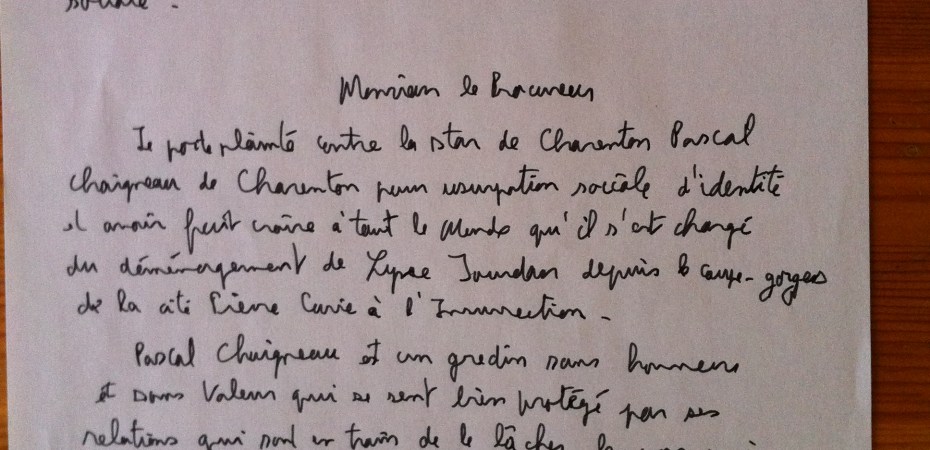 sociale.
Monsieur le Procureur
Je porte plainte contre la star de Charenton Pascal
Chaigneau de Charenton pour usurpation sociale d'identité
il avait fait croire à tout le monde qu'il s'est chargé
du déménagement de Jourdan depuis le coupe-gorges
de la cité Pierre Curie à l'Insurrection -
Pascal Chaigneau et un gredin sans honneur
et sans valeur qui se sent bien protégé par ses
relations qui sont en train de le lâcher